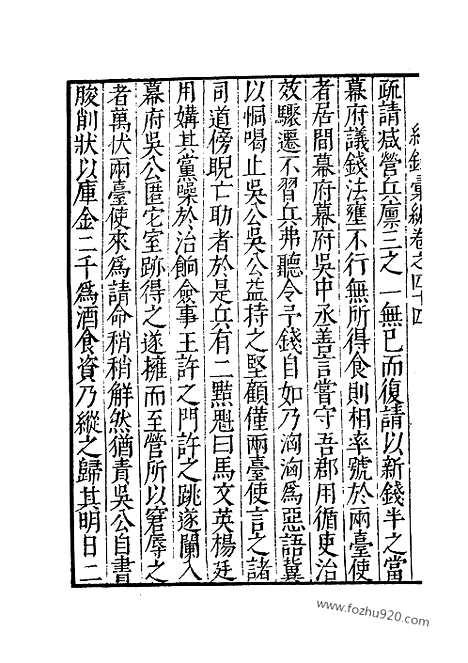 紀錄彙編卷之四十四
疏請減營兵廩三之一無已而復請以新錢半之當
幕府議錢法壅不行無所得食則相率號於兩臺使
者居間幕府幕府吳中丞善言嘗守吾郡用循吏治
效驟遷不習兵弗聽令予錢自如乃洶洶為惡語冀
以恫喝止吳公吳公益持之堅顧僅兩臺使言之諸
司道傍睨亡助者於是兵有二點魁曰馬文英楊廷
用媾其黨噪於治餉僉事王許之門許之跳遂闌入
幕府吳公匿它室跡得之遂擁而至營所以窘辱之
者萬伏兩臺使來為請命稍稍解然猶責吳公自書
朘削狀以庫金二千為酒食資乃縱之歸其明日二
www.fozhu920.com